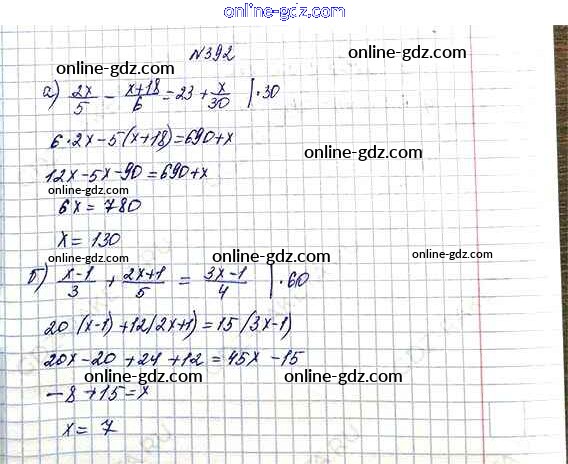 online-gdz.com
N392
online-gdz.com online-gdz.com
а) 2x/5 - x+18/6 = 23 + x/30 |·30
6·2x-5(x+18)=690+x
online-gdz.com
12x-5x-90=690+x
online-gdz.com online-gdz.com
6x = 780
x = 130
online-gdz.com online-gdz.com online-gdz.com
б) x-1/3 + 2x+1/5 = 3x-1/4 |·60
20(x-1)+12(2x+1)=15(3x-1)
online-gdz.com
20x-20+24+12=45x-15
online-gdz.com online-gdz.com
-8+15=x
x = 7
online-gdz.com